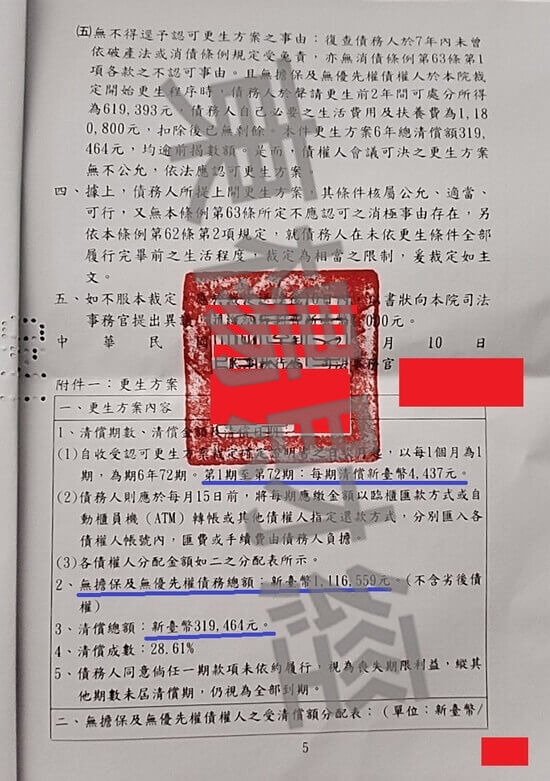 ㈤無不得逕予認可更生方案之事由：復查債務人於7年內未曾
依破產法或消債條例規定受免責，亦無消債條例第63條第1
項各款之不認可事由。且無擔保及無優先權債權人於本院裁
定開始更生程序時，債務人於聲請更生前2年間可處分所得
為619,393元，債務人自己必要之生活費用及扶養費為1,18
0,800元，扣除後已無剩餘，本件更生方案6年總清償額319,
464元，均逾前揭數額。是而，債權人會議可決之更生方案
無不公允，依法應認可更生方案。
四、據上，債務人所提上開更生方案，其條件核屬公允、適當、
可行，又無本條例第63條所定不應認可之消極事由存在，另
依本條例第62條第2項規定，就債務人在未依更生條件全部
履行完畢前之生活程度，裁定為相當之限制，爰裁定如主
文。
五、如不服本裁定，書狀向本院司法
事務官提出異議，000元。
中華民國 月10日
務官
附件一：更生方案
一、更生方案內容
1、清償期數、清償金額
(1)自收受認可更生方案裁定之日起，以每1個月為1
期，為期6年72期。第1期至第72期：每期清償新臺幣4,437元。
(2)債務人則應於每月15日前，將每期應繳金額以臨櫃匯款方式或自
動櫃員機（ATM）轉帳或其他債權人指定還款方式，分別匯入各
債權人帳號內，匯費或手續費由債務人負擔。
(3)各債權人分配金額如二之分配表所示。
2、無擔保及無優先權債務總額：新臺幣1,116,559元。(不含劣後債
權)
3、清償總額：新臺幣319,464元。
4、清償成數：28.61%
5、債務人同意倘任一期款項未依約履行，視為喪失期限利益，縱其
他期數未屆清償期，仍視為全部到期。
二、無擔保及無優先權債權人之受清償額分配表：（單位：新臺幣/
5